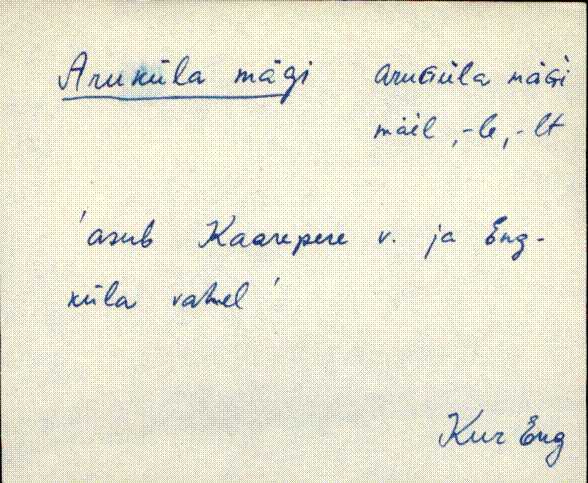 Aruküla mägi aruGüla mäGi
mäel, -le, -lt
'asub Kaarepere v. ja Eng-
küla vahel'
Kur Eng